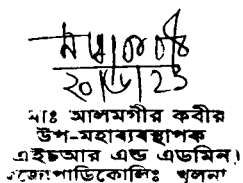 ২০/৬/২৩
মোঃ আলমগীর কবীর
উপ-মহাব্যবস্থাপক
এইচআর এন্ড এডমিন।
ওজোপাডিকোলিঃ খুলনা